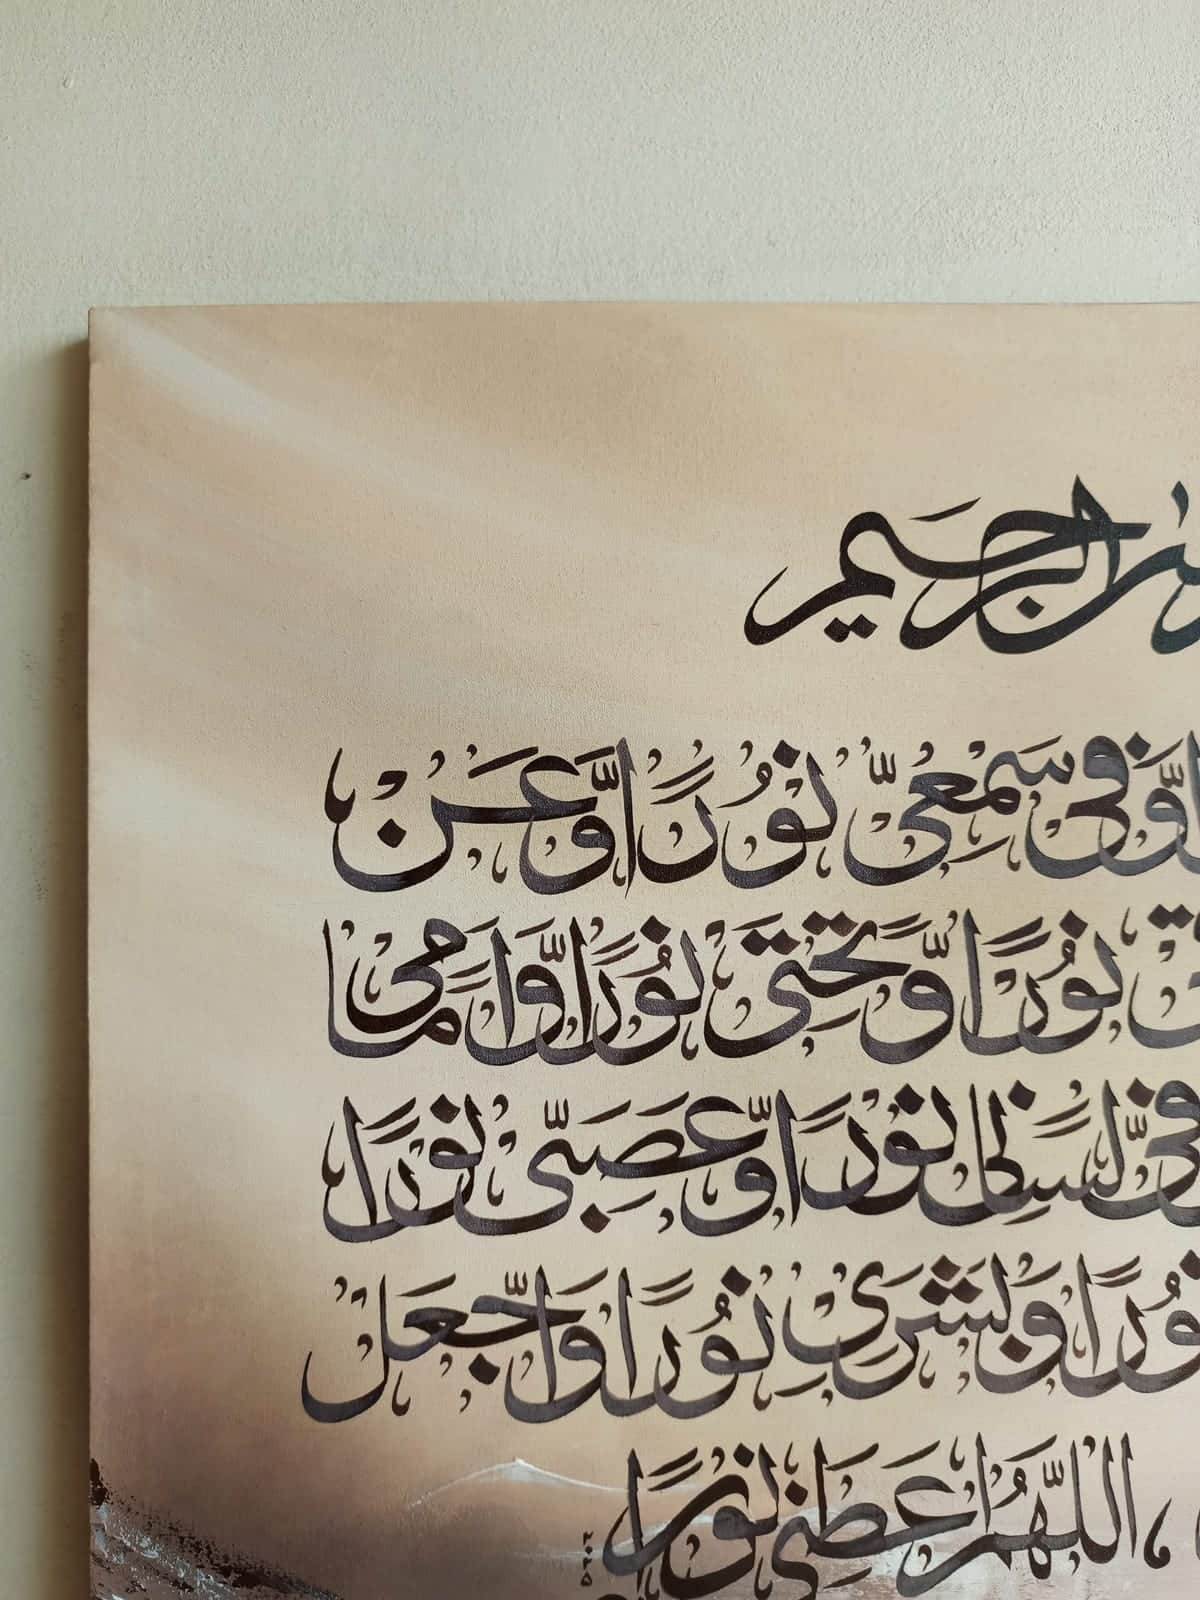 الرحيم
وَّفِي سَمْعِيّ نُوْرًا وَّعَنْ
نُوْرًا وَّتَحْتِيْ نُوْرًا وَّاَمَامِيْ
فِيّ لِسَانِيْ نُوْرًا وَّعَصَبِيّ نُوْرًا
نُوْرًا وَبَشَرِيْ نُوْرًا وَاجْعَلْ
اللّٰهُمَّ نُوْرًا